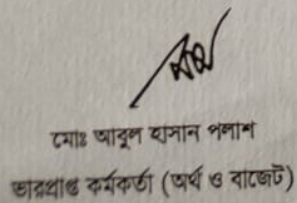 মোঃ আবুল হাসান পলাশ
ভারপ্রাপ্ত কর্মকর্তা (অর্থ ও বাজেট)